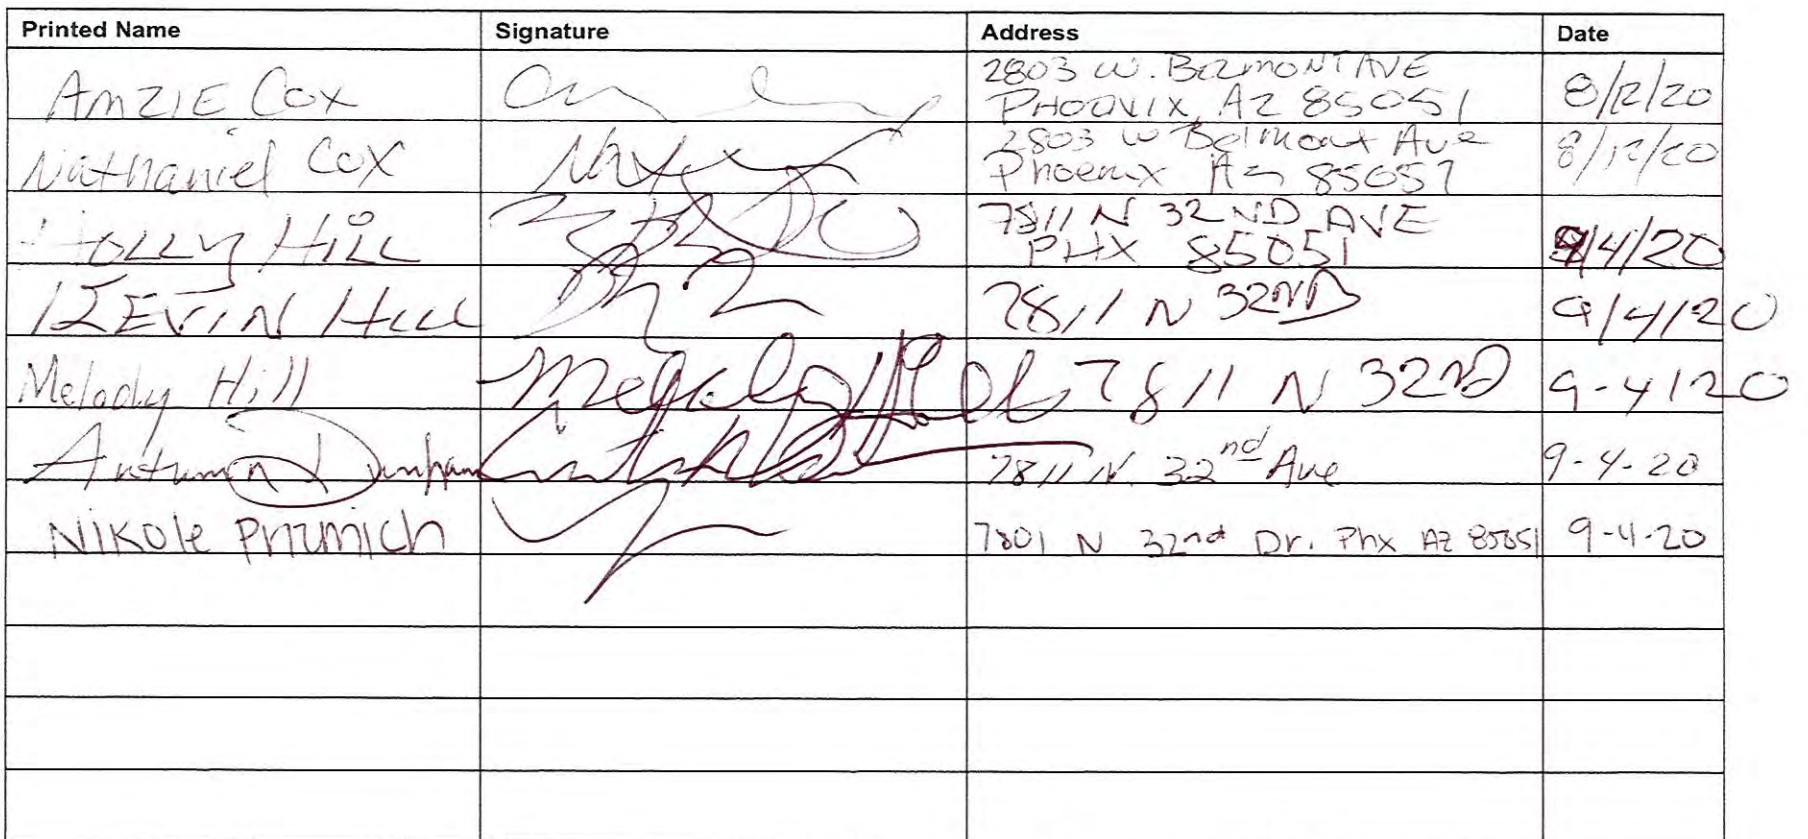 Printed Name Signature Address Date
Amzie Cox 2803 W. Belmont Ave
Phoenix, AZ 85051 8/12/20
Nathaniel Cox 2803 W Belmont Ave
Phoenix Az 85051 8/12/20
Holly Hill 7811 N 32ND AVE
PHX 85051 9/4/20
KEVIN Hill 7811 N 32ND 9/4/20
Melody Hill 7811 N 32nd 9-4/20
Autumn Dunham 7811 N. 32nd Ave 9-4-20
Nikole Prizmich 7801 N 32nd Dr. Phx AZ 85051 9-4-20